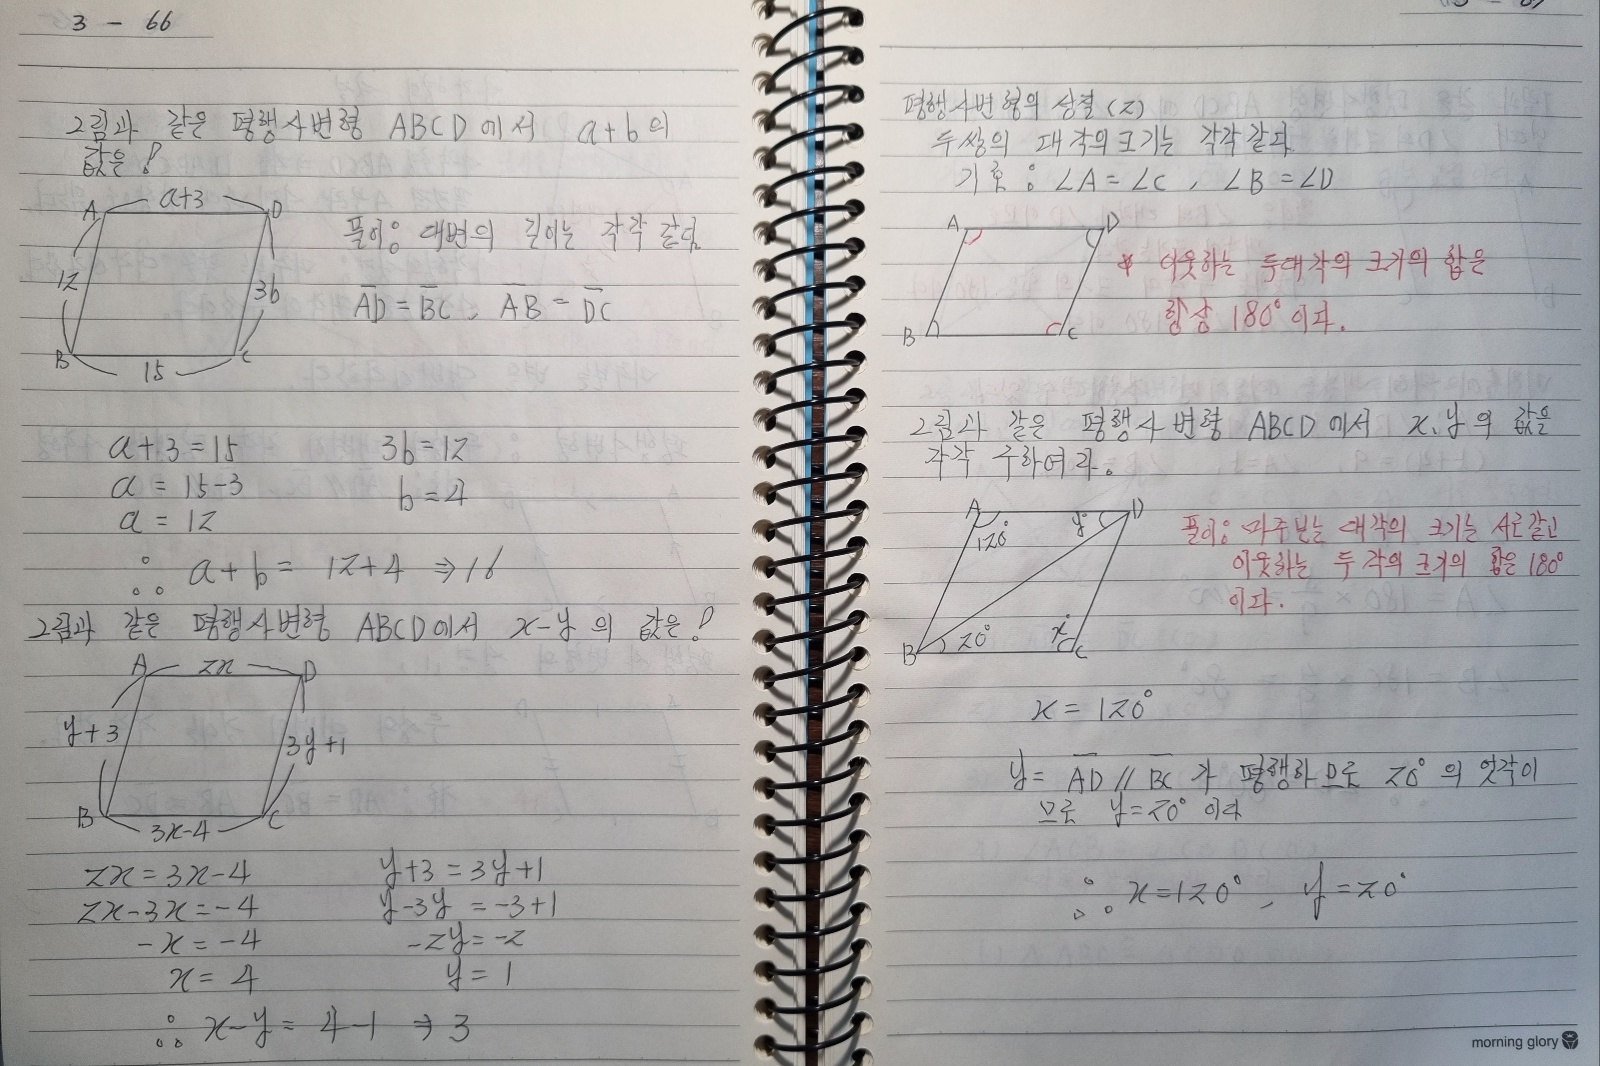 3 - 66
그림과 같은 평행사변형 ABCD에서 a+b의
값은?
A a+3 D
12
3b
B 15 C
풀이: 대변의 길이는 각각 같다.
AD = BC, AB = DC
a+3=15
a = 15-3
a = 12
3b=12
b=4
∴ a+b = 12+4 ⇒ 16
그림과 같은 평행사변형 ABCD에서 x-y의 값은?
A 2x D
y+3
3y+1
B 3x-4 C
2x=3x-4
2x-3x=-4
-x=-4
x=4
y+3=3y+1
y-3y=-3+1
-2y=-2
y=1
∴ x-y= 4-1 ⇒ 3
평행사변형의 성질(2)
두쌍의 대각의크기는 각각 같다.
기호: ∠A=∠C, ∠B=∠D
A D
B C
* 이웃하는 두대각의 크기의 합은
항상 180°이다.
그림과 같은 평행사변형 ABCD에서 x, y의 값을
각각 구하여라.
A y° D
120°
B 20° x° C
풀이: 마주보는 대각의 크기는 서로같고
이웃하는 두 각의 크기의 합은 180°
이다.
x=120°
y= AD // BC 가 평행하므로 20°의 엇각이
므로 y=20° 이다
∴ x=120°, y=20°
morning glory